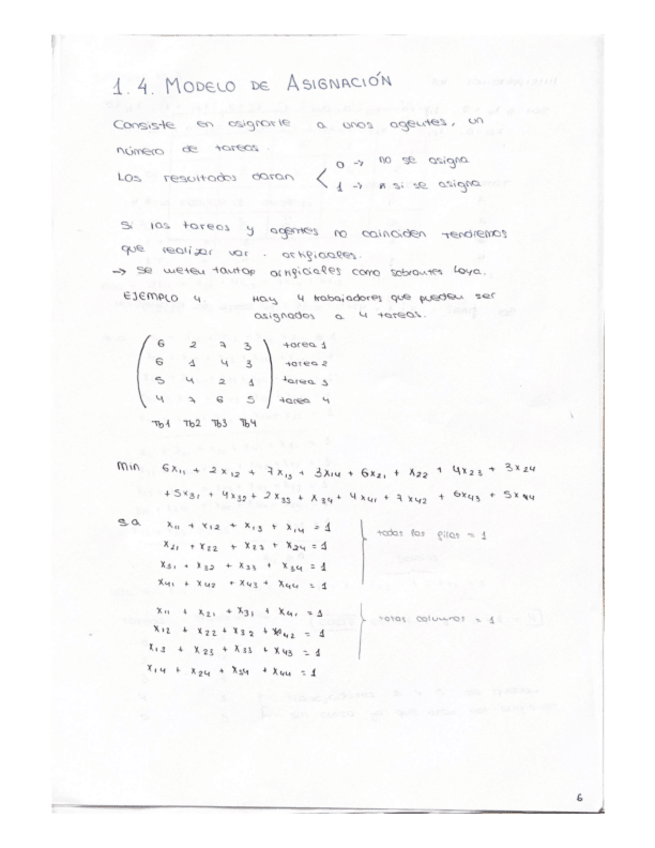 1.4. MODELO DE ASIGNACIÓN
Consiste en asignarle a unos agentes, un
número de tareas.
Los resultados daran < 0 → no se asigna
1 → si se asigna
Si las tareas y agentes no coinciden tendremos
que realizar var. artificiales.
→ Se meten tantas artificiales como sobrantes haya.
EJEMPLO 4. Hay 4 trabajadores que pueden ser
asignados a 4 tareas.
6 2 7 3 tarea 1
6 1 4 3 tarea 2
5 4 2 1 tarea 3
4 7 6 5 tarea 4
Tb1 Tb2 Tb3 Tb4
Min 6x11 + 2x12 + 7x13 + 3x14 + 6x21 + x22 + 4x23 + 3x24
+ 5x31 + 4x32 + 2x33 + x34 + 4x41 + 7x42 + 6x43 + 5x44
s.a x11 + x12 + x13 + x14 = 1
x21 + x22 + x23 + x24 = 1 todas las filas = 1
x31 + x32 + x33 + x34 = 1
x41 + x42 + x43 + x44 = 1
x11 + x21 + x31 + x41 = 1
x12 + x22 + x32 + x42 = 1 todas columnas = 1
x13 + x23 + x33 + x43 = 1
x14 + x24 + x34 + x44 = 1
6